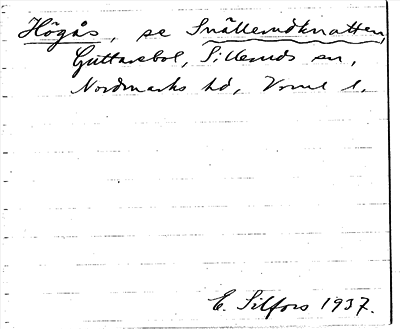 Högås, se Snällerudknatten,
Guttarsbol, Silleruds sn,
Nordmarks hd, Vrml l.
E. Silfors 1937.